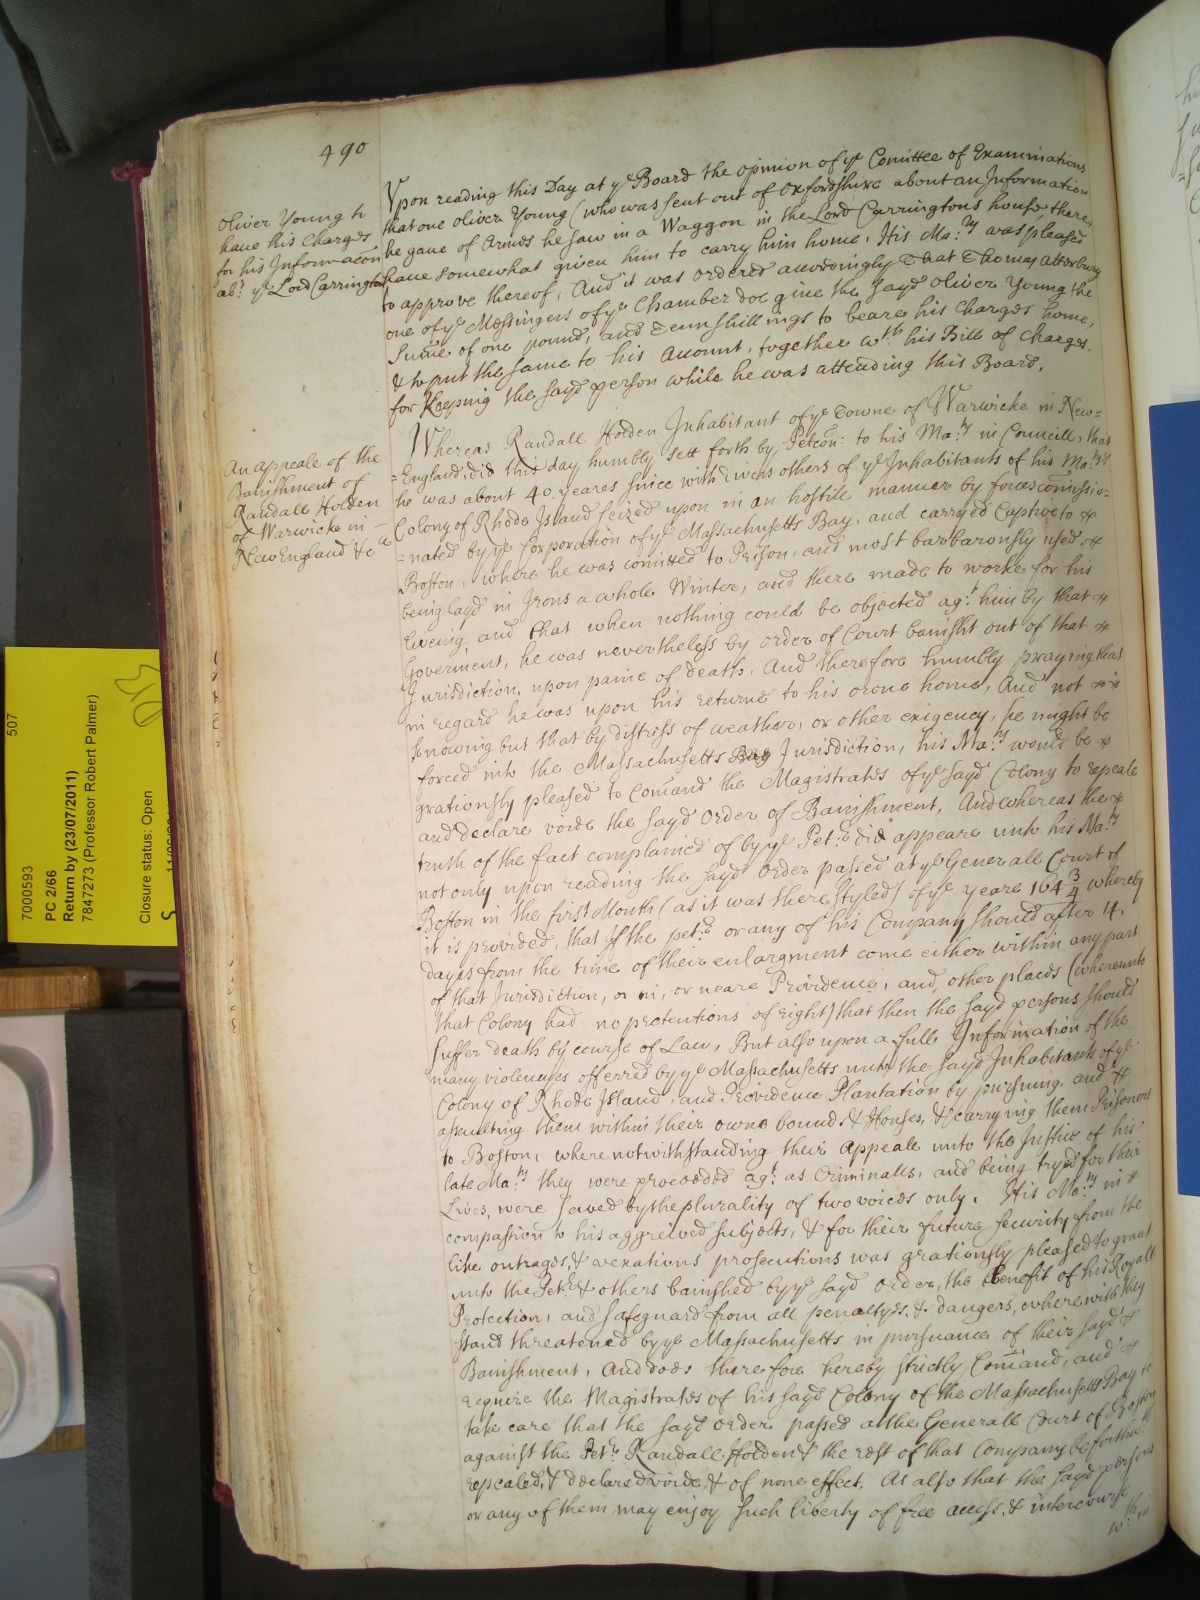 490
Oliver Young to
haue his Charges
for his Informacon
abt. ye. Lord Carrington
Vpon reading this Day at ye Board the opinion of ye Comittee of Examinations
that one Oliver Young (who was sent out of Oxfordshire about an Information
he gaue of Armes he saw in a Waggon in the Lord Carringtons house, there,
haue somewhat given him to carry him home. His Ma:ty was pleased
to approve thereof, And it was ordered accordingly That Thomas Atterbury
one of ye Messingers of ye Chamber doe give the sayd Oliver Young the
Sume of one pound, and Tenn shillings to beare his Charges home,
& to put the same to his Account, together wth his Bill of Charges
for keeping the sayd person while he was attending this Board.
An appeale of the
Banishment of
Randall Holden
of Warwicke in
New England &ca
Whereas Randall Holden Inhabitant of ye Towne of Warwicke in New=
=England, did this day humbly sett forth by Petcon: to his Ma:ty in Councill, that
he was about 40. yeares since with divers others of ye Inhabitants of his Ma:tys
Colony of Rhode Island seized upon in an hostile manner by forces comissio-
=nated by ye Corporation of ye Massachusetts Bay, and carryed Captive to
Boston, where he was comitted to Prison, and most barbarously used
being layd in Irons a whole Winter, and there made to worke for his
liveing, and that when nothing could be objected agt. him by that
Goverment, he was nevertheless by order of Court banisht out of that
Jurisdiction, upon paine of death. And therefore humbly praying that
in regard he was upon his returne to his owne home, And not
knowing but that by distress of weather, or other exigency, he might be
forced into the Massachusetts Bay Jurisdiction, his Ma:ty would be
gratiously pleased to comand the Magistrates of ye sayd Colony to repeale
and declare voide the sayd Order of Banishment, And whereas the
truth of the fact complained of by ye Pet:r did appeare unto his Ma:ty
not only upon reading the sayd Order passed at ye Generall Court of
Boston in the first Month (as it was there styled) of ye yeare 164 3/4 whereby
it is provided, that If the pet:r or any of his Company should after 14.
dayes from the time of their enlargment come either within any part
of that Jurisdiction, or in, or neare Providence, and, other places (whereunto
that Colony had no pretentions of right) that then the sayd persons should
suffer death by course of Law, But also upon a full Information of the
many violences offerred by ye Massachusetts unto the sayd Inhabitants of ye
Colony of Rhode Island, and Providence Plantation by pursuing, and
assaulting them within their owne bounds & Houses, & carrying them Prisoners
to Boston, where notwithstanding their Appeale unto the Justice of his
late Ma:ty they were proceeded agt. as Criminalls, and being tryed for their
Lives, were saved by the plurality of two voices only. His Ma:ty in
compassion to his aggreived subjects, & for their future security from the
like outrages, & vexations prosecutions was gratiously pleased to grant
unto the Pet:r & others banished by ye sayd Order, the Benefit of his Royall
Protection, and safeguard from all penaltyes, & dangers, wherewith they
stand threatened by ye Massachusetts in pursuance of their sayd
Banishment, And does therefore hereby strictly Comand, and
require the Magistrates of his sayd Colony of the Massachusetts Bay to
take care that the sayd order passed att the Generall Court of Boston
against the Pet:r Randall Holden & the rest of that Company be forthwith
repealed, & declared voide, & of none effect, As also that the sayd persons
or any of them may enjoy such liberty of free access, & intercourse
507
7000593
PC 2/66
Return by (23/07/2011)
7847273 (Professor Robert Palmer)
Closure status: Open